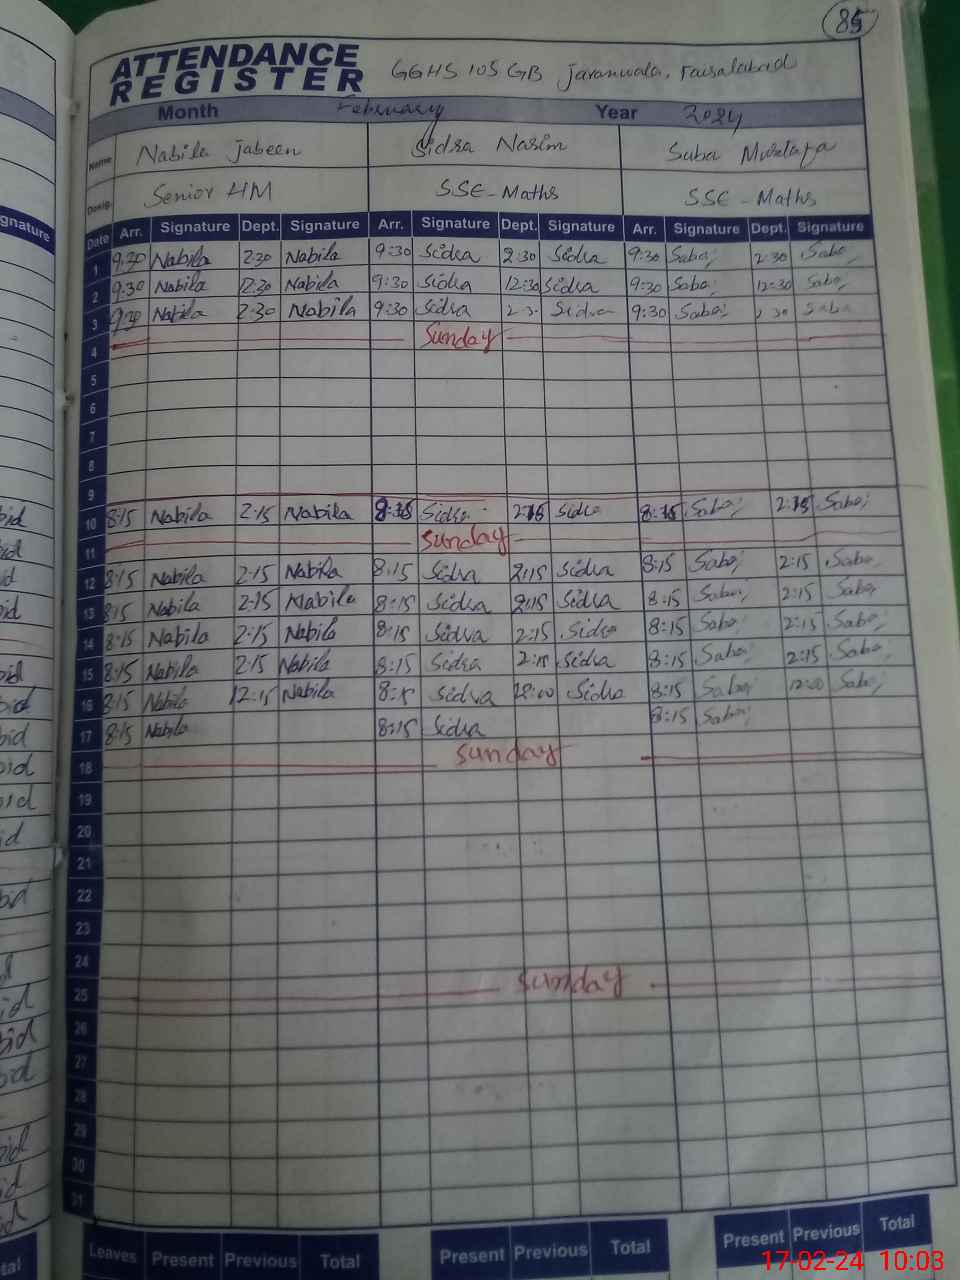 85
ATTENDANCE
REGISTER
GGHS 105 GB Jaranwala, Faisalabad
Month February Year 2024
Name Nabila Jabeen Sidra Nasim Saba Mustafa
Desig. Senior HM SSE-Maths SSE-Maths
Date Arr. Signature Dept. Signature Arr. Signature Dept. Signature Arr. Signature Dept. Signature
1 9:30 Nabila 2:30 Nabila 9:30 Sidra 2:30 Sidra 9:30 Saba 2:30 Saba
2 9:30 Nabila 12:30 Nabila 9:30 Sidra 12:30 Sidra 9:30 Saba 12:30 Saba
3 9:30 Nabila 2:30 Nabila 9:30 Sidra 2:30 Sidra 9:30 Saba 2:30 Saba
4 Sunday
5
6
7
8
9
10 8:15 Nabila 2:15 Nabila 8:15 Sidra 2:15 Sidra 8:15 Saba 2:15 Saba
11 Sunday
12 8:15 Nabila 2:15 Nabila 8:15 Sidra 2:15 Sidra 8:15 Saba 2:15 Saba
13 8:15 Nabila 2:15 Nabila 8:15 Sidra 2:15 Sidra 8:15 Saba 2:15 Saba
14 8:15 Nabila 2:15 Nabila 8:15 Sidra 2:15 Sidra 8:15 Saba 2:15 Saba
15 8:15 Nabila 2:15 Nabila 8:15 Sidra 2:15 Sidra 8:15 Saba 2:15 Saba
16 8:15 Nabila 12:15 Nabila 8:15 Sidra 12:00 Sidra 8:15 Saba 12:00 Saba
17 8:15 Nabila 8:15 Sidra 8:15 Saba
18 Sunday
19
20
21
22
23
24
25 Sunday
26
27
28
29
30
31
Leaves Present Previous Total Present Previous Total Present Previous Total
17-02-24 10:03